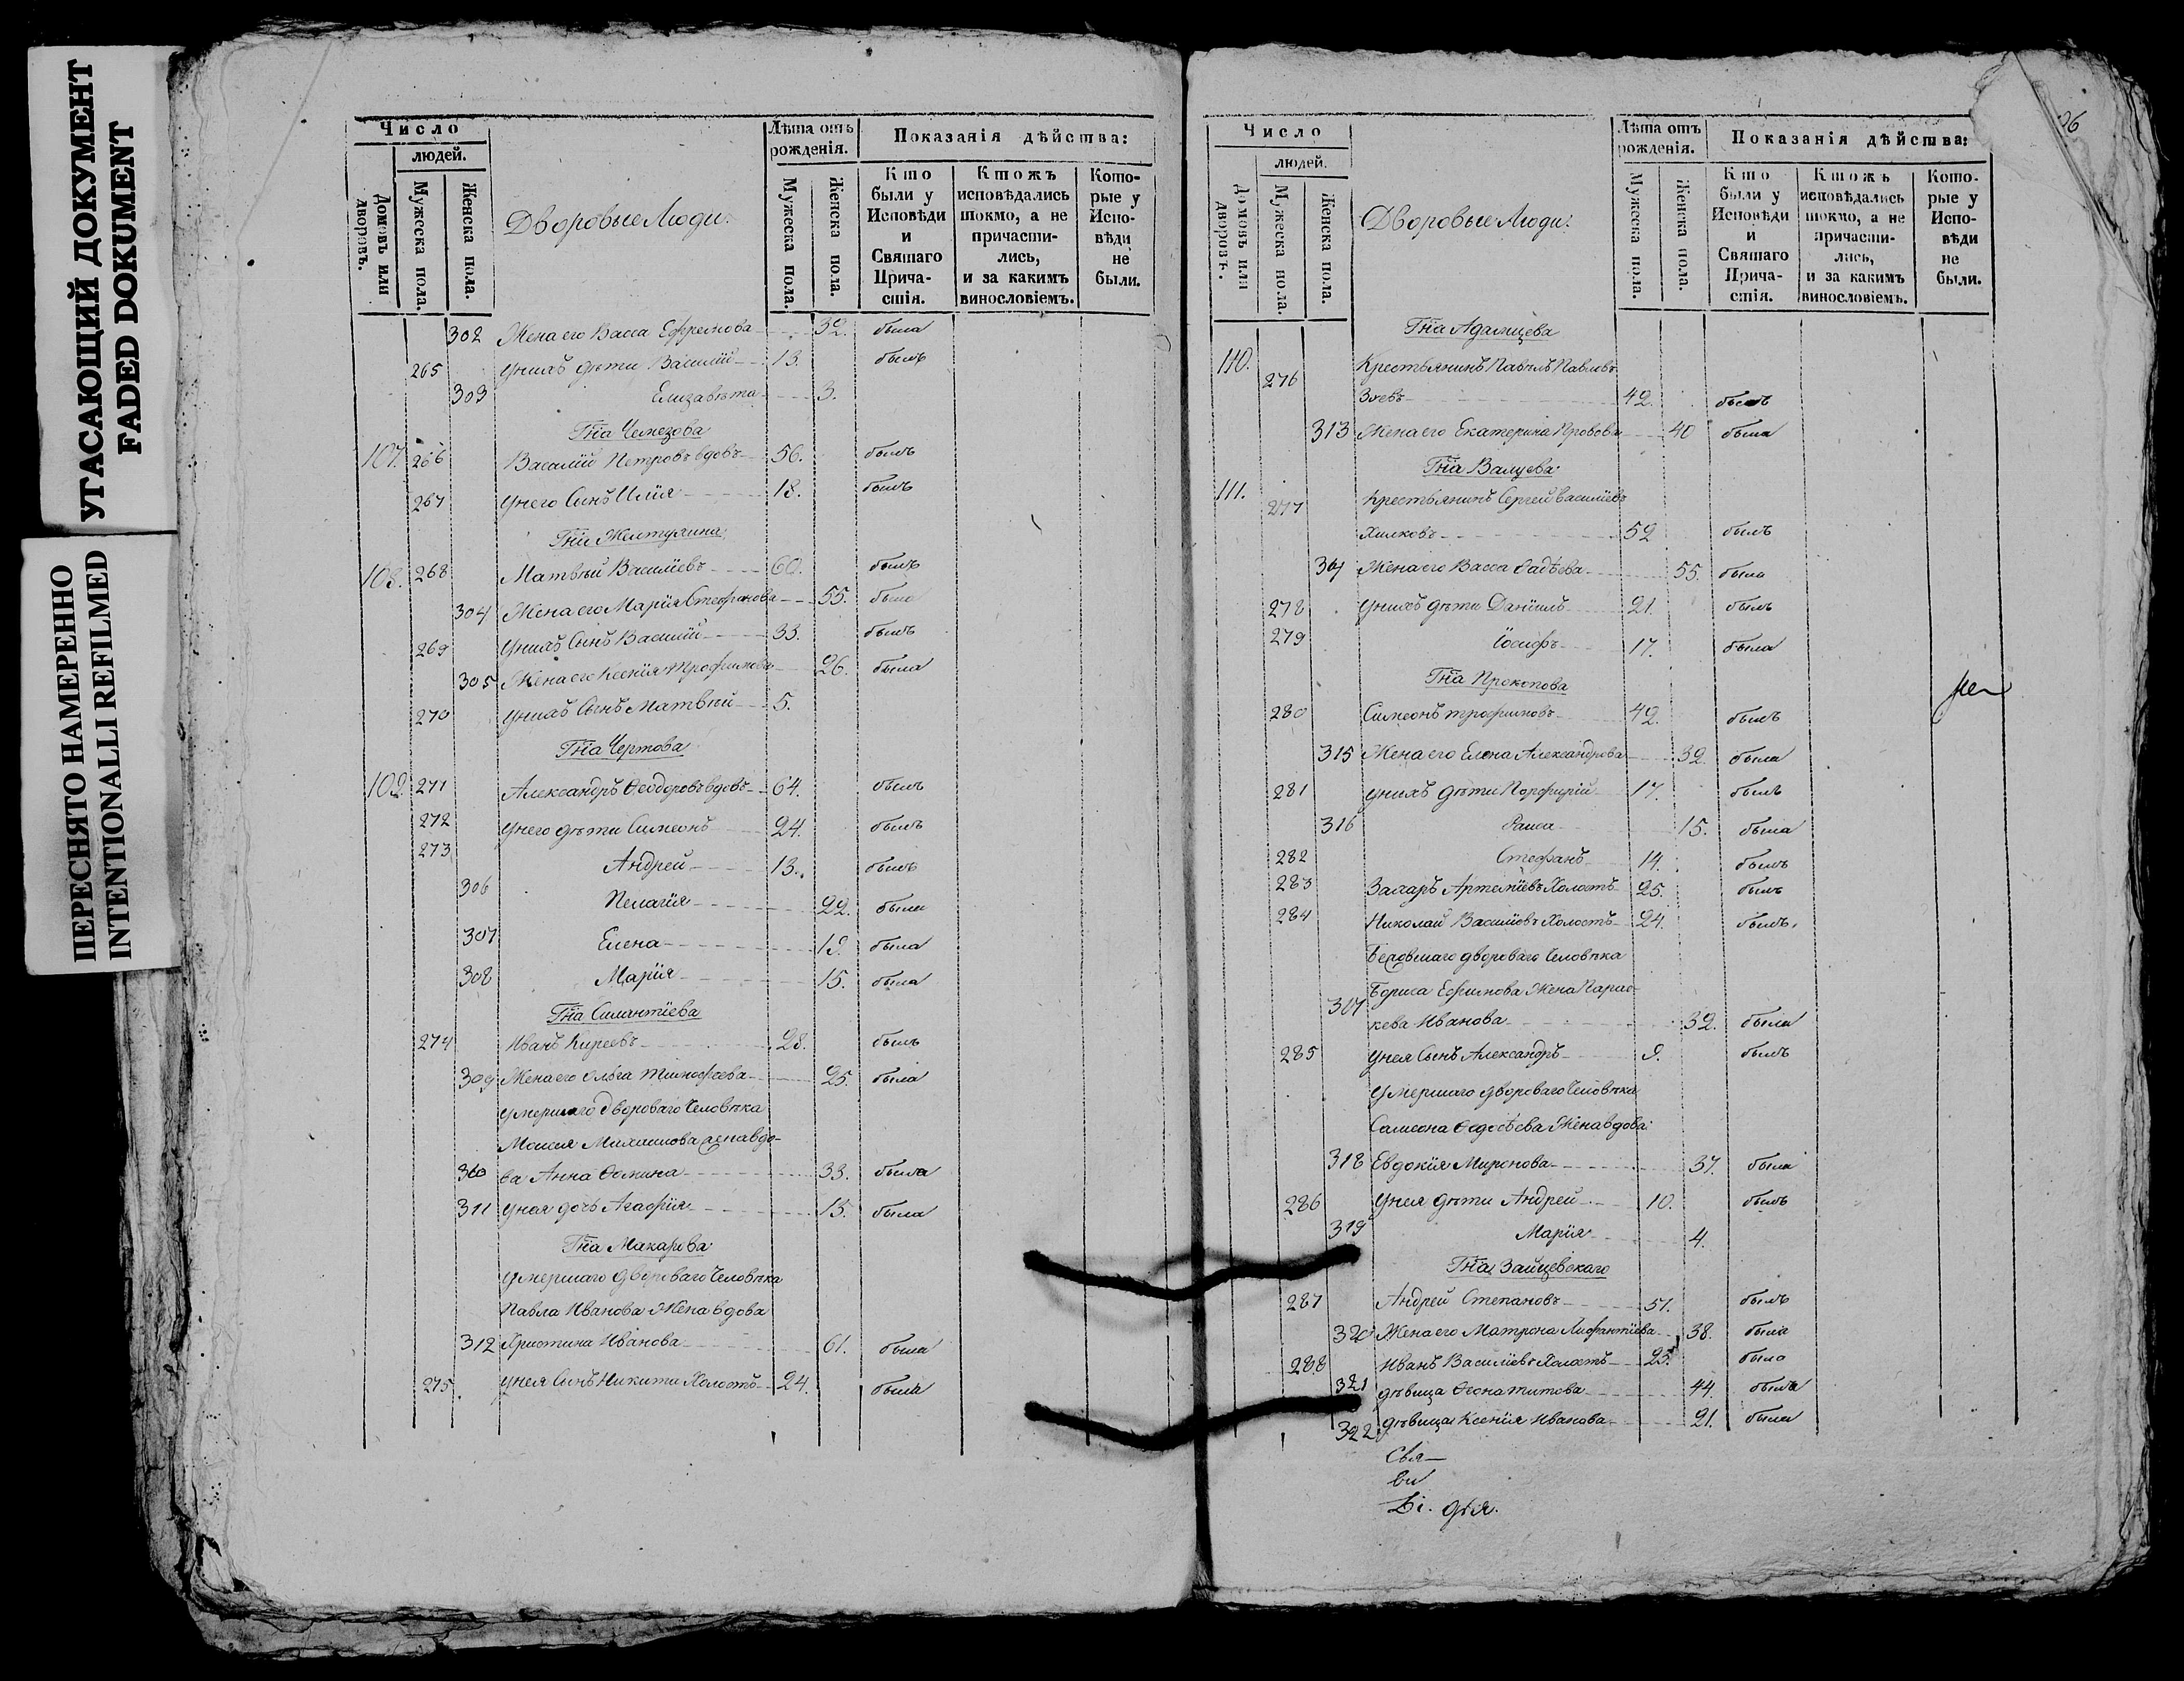 УГАСАЮЩИЙ ДОКУМЕНТ
FADED DOKUMENT
ПЕРЕСНЯТО НАМЕРЕННО
INTENTIONALLI REFILMED
Число
людей.
Домовъ или дворовъ.
Мужеска пола.
Женска пола.
Дворовые Люди.
Лѣта отъ рожденія.
Мужеска пола.
Женска пола.
Показанія дѣйства:
Кто были у Исповѣди и Святаго Прича- стія.
Ктожъ исповѣдались токмо, а не причасти- лись, и за какимъ винословіемъ.
Кото- рые у Испо- вѣди не были.
302 Жена его Васса Ефремова 32. была
265 Унихъ дѣти Василій 13. былъ
303 Елизавѣта 3.
Гна Чемезова
107. 266 Василій Петровъ вдовъ 56. былъ
267 Унего Сынъ Илія 18. былъ
Гна Желтухина
108. 268 Матвѣй Василіевъ 60. былъ
304 Жена его Марія Стефанова 55. была
269 Унихъ Сынъ Василій 33. былъ
305 Жена его Ксенія Трофимова 26. была
270 Унихъ Сынъ Матвѣй 5.
Гна Чертова
109. 271 Александръ Ѳеодоровъ вдовъ 64. былъ
272 Унего дѣти Симеонъ 24. былъ
273 Андрей 13. былъ
306 Пелагія 22. была
307 Елена 19. была
308 Марія 15. была
Гна Силантіева
274 Иванъ Киреевъ 28. былъ
309 Жена его Ольга Тимофеева 25. была
Умершаго двороваго Человѣка
Моисея Михаилова жена вдо-
310 ва Анна Ѳомина 33. была
311 Унея дочь Агафія 15. была
Гна Макарова
Умершаго двороваго Человѣка
Павла Иванова Жена вдова
312 Христина Иванова 61. была
275 Унея Сынъ Никита Холостъ 24. была
26
Число
людей.
Домовъ или дворовъ.
Мужеска пола.
Женска пола.
Дворовые Люди.
Лѣта отъ рожденія.
Мужеска пола.
Женска пола.
Показанія дѣйства:
Кто были у Исповѣди и Святаго Прича- стія.
Ктожъ исповѣдались токмо, а не причасти- лись, и за какимъ винословіемъ.
Кото- рые у Испо- вѣди не были.
Гна Адамцева
110. 276 Крестьянинъ Павелъ Павловъ
Зуевъ 42. былъ
313 Жена его Екатерина Провова 40 была
Гна Валуева
111. 277 Крестьянинъ Сергей Василіевъ
Хилковъ 52 былъ
Жена его Васса Фадѣева 55. была
278 Унихъ дѣти Даніилъ 21. былъ
279 Іосифъ 17. была
Гна Прокопова
280 Симеонъ Трофимовъ 42. былъ
315 Жена его Елена Александрова 39. была
281 Унихъ дѣти Порфирій 17. былъ
316 Раиса 15. была
282 Стефанъ 14. былъ
283 Захаръ Артеміевъ Холостъ 25. былъ
284 Николай Василіевъ Холостъ 24. былъ.
двороваго Человѣка
Бориса Ефимова Жена Парас-
317 кева Иванова 32. была
285 Унея Сынъ Александръ 9. былъ
Умершаго двороваго Человѣка
Самсона Ѳадѣева Жена вдова
318 Евдокія Миронова 37. была
286 Унея дѣти Андрей 10. былъ
319 Марія 4.
Гна Зайцевскаго
287 Андрей Степановъ 51. былъ
320 Жена его Матрона 38. была
288 Иванъ Василіевъ Холостъ 25. было
321 дѣвица Ѳеона Титова 44. была
322 дѣвица Ксенія Иванова 21. была
Свя—